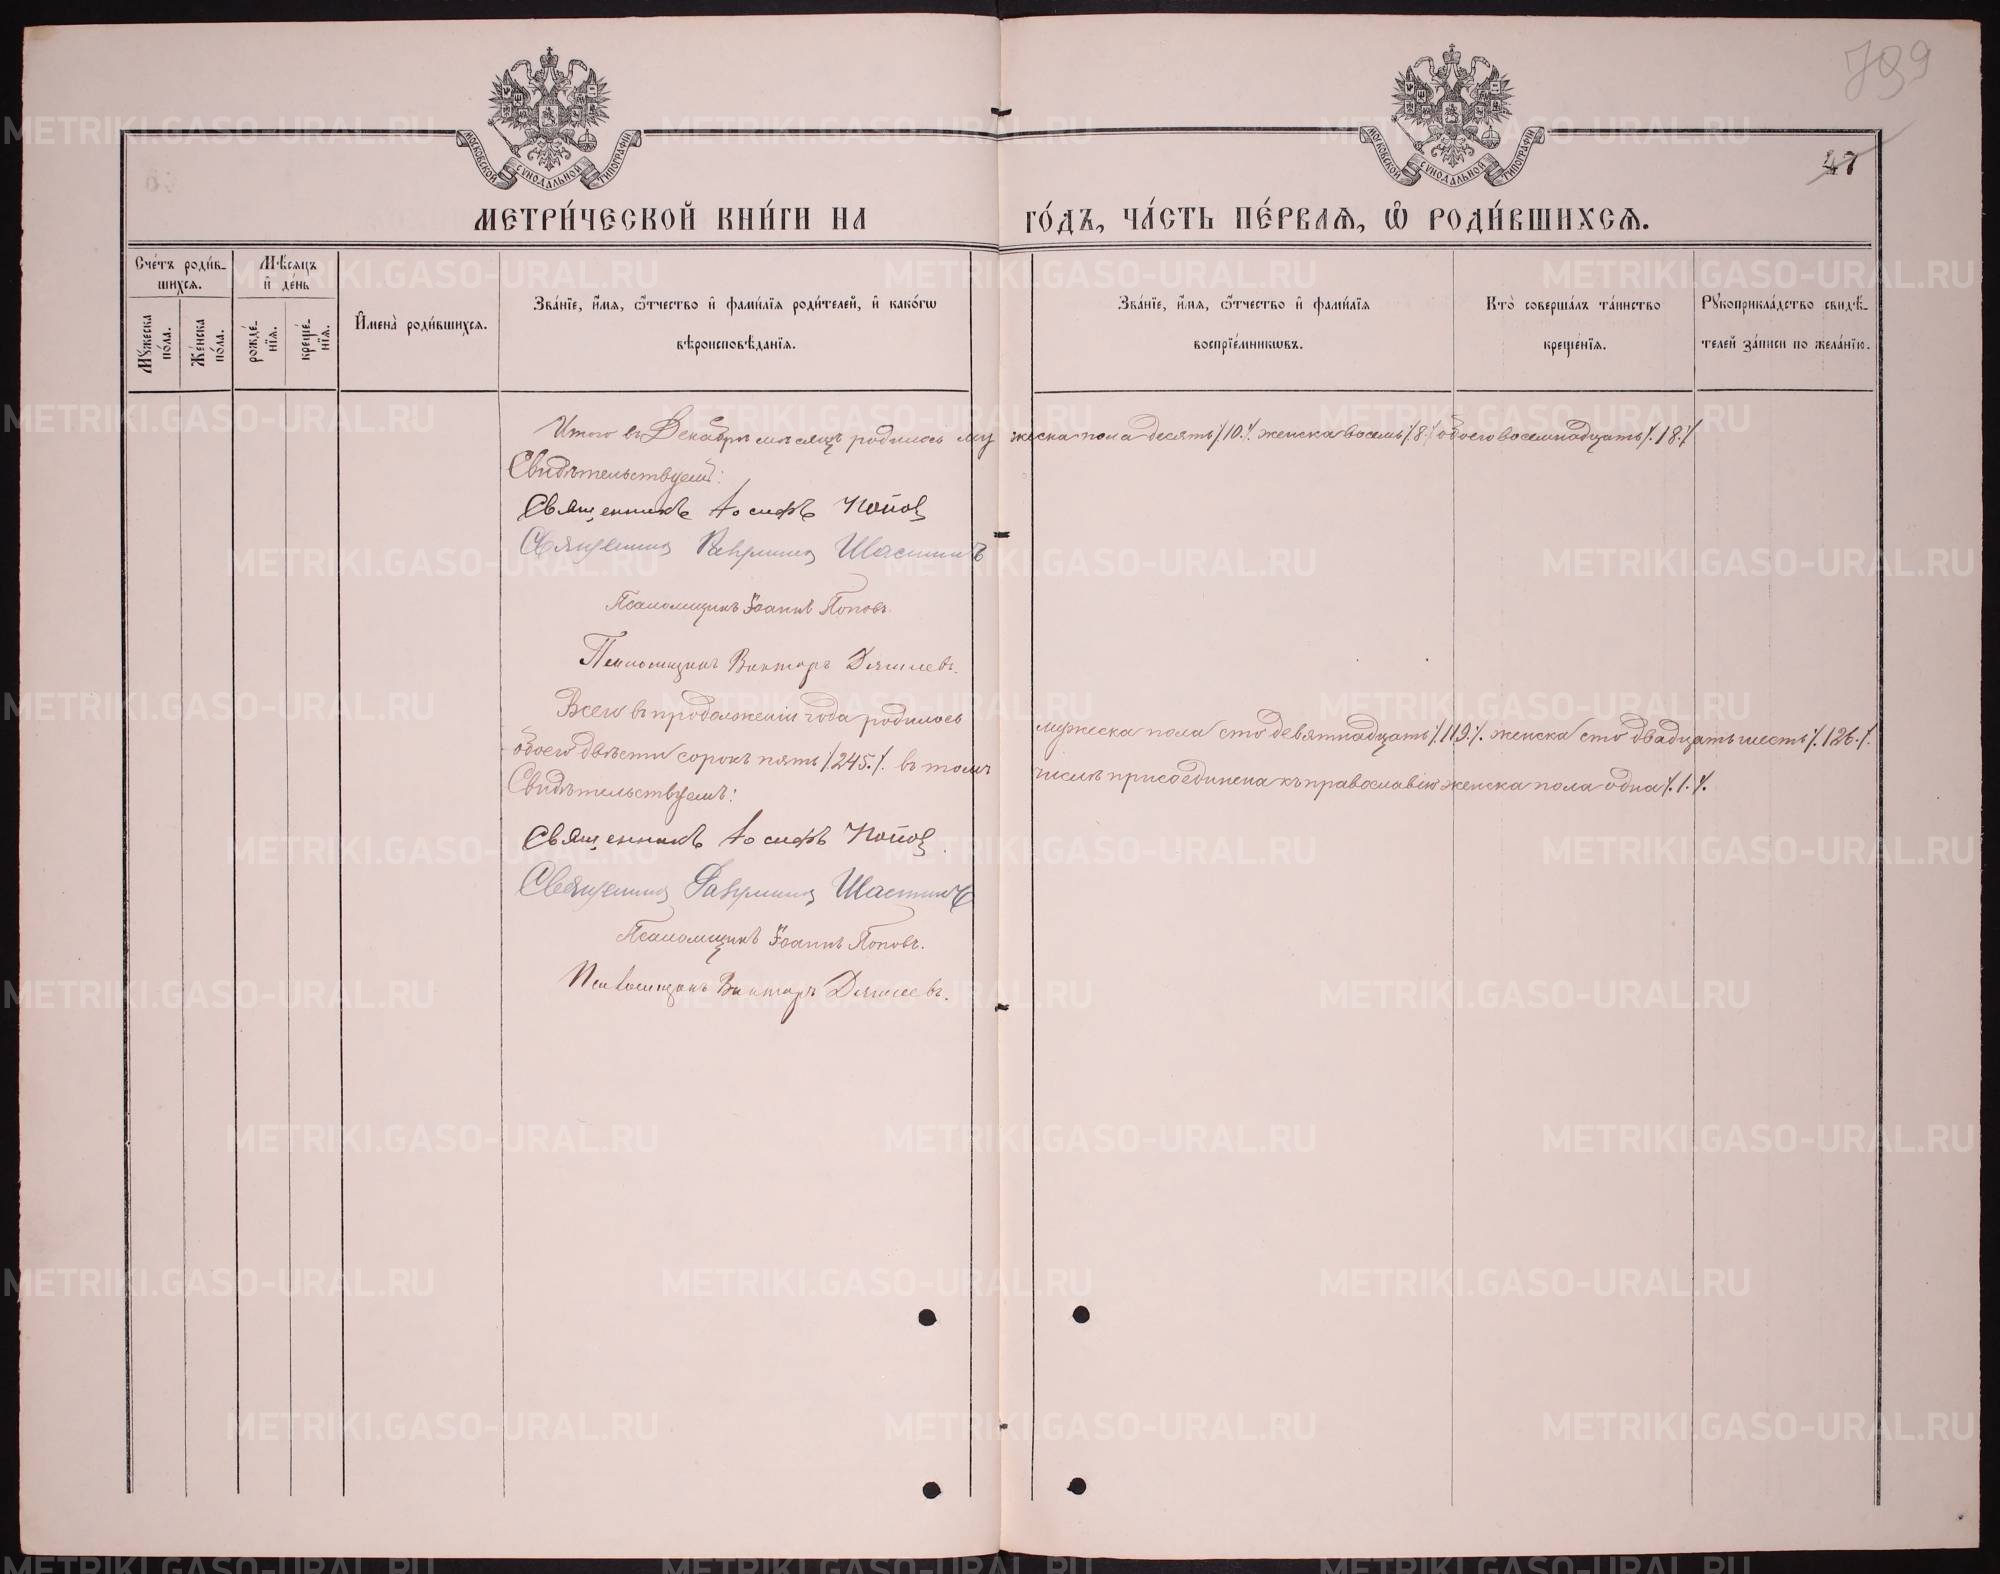 799
47
МОСКОВСКОЙ СѴНОДАЛЬНОЙ ТИПОГРАФІИ
МОСКОВСКОЙ СѴНОДАЛЬНОЙ ТИПОГРАФІИ
МЕТРИ́ЧЕСКОЙ КНИ́ГИ НА ГО́ДЪ, ЧА́СТЬ ПЕ́РВАѦ, Ѽ РОДИ́ВШИХСѦ.
Сче́тъ роди́в-
шихсѧ.
Мꙋжеска
по́ла.
Же́нска
по́ла.
Мѣ́сѧцъ
и҆ де́нь
рожде́-
нїѧ.
креще́-
нїѧ.
И҆мена̀ роди́вшихсѧ.
Зва́нїе, и҆́мѧ, ѻ҆́тчество и҆ фамѝлїѧ роди́телей, и҆ како́гѡ
вѣроисповѣ́данїѧ.
Зва́нїе, и҆́мѧ, ѻ҆́тчество и҆ фамѝлїѧ
воспрїе́мникѡвъ.
Кто̀ соверша́лъ та́инство
креще́нїѧ.
Рꙋкоприкла́дство свидѣ́-
телей за́писи по жела́нїю.
Итого въ Декабрѣ мѣсяцѣ родилось мужеска пола десять /10./. женска восемь /.8./ обоего восемнадцать /.18./.
Свидѣтельствуемъ:
Священникъ Іосифъ Попов
Священникъ Гавріилъ Шастинъ
Псаломщикъ Іоаннъ Поповъ.
Псаломщикъ Викторъ Дягилевъ.
Всего въ продолженіи года родилось мужеска пола сто девятнадцать /.119./. женска сто двадцать шесть /.126./.
обоего двѣсти сорокъ пять /.245./. въ томъ числѣ присоединена къ православію женска пола одна /.1./.
Свидѣтельствуемъ:
Священникъ Іосифъ Попов
Священникъ Гавріилъ Шастинъ
Псаломщикъ Іоаннъ Поповъ.
Псаломщикъ Викторъ Дягилевъ.
METRIKI.GASO-URAL.RU